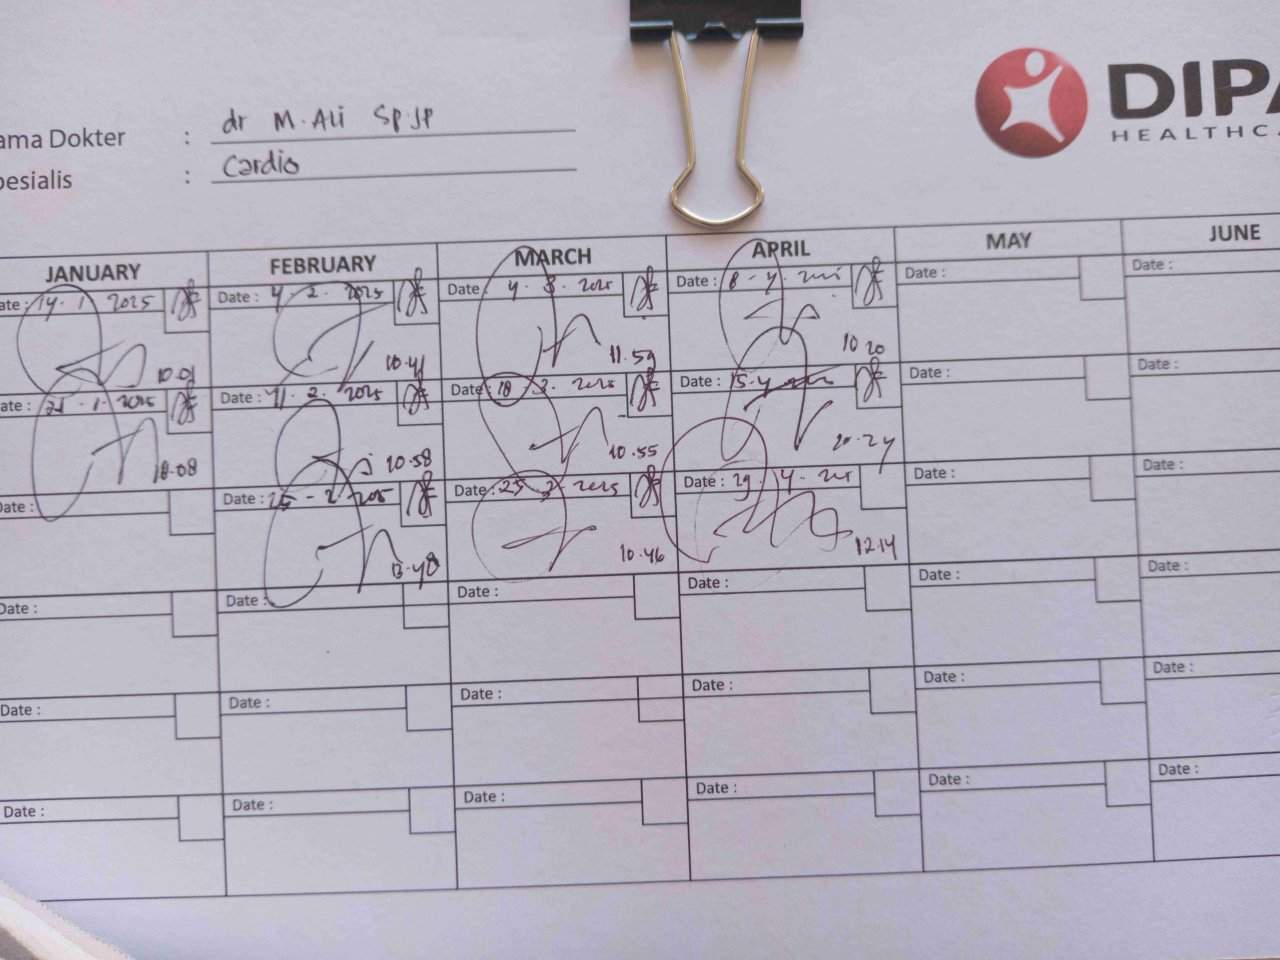 DIPA
HEALTHCA
ama Dokter : dr M. Ali Sp.JP
pesialis : Cardio
JANUARY FEBRUARY MARCH APRIL MAY JUNE
ate: 14. 1 2025 Date : 4. 2. 2025 Date : 4. 3. 2025 Date : 8 - 4. Date : Date :
10.41 11.59 10 20
ate: 1. 2025 Date : 11. 2. 2025 Date : 18. 3. 2025 Date : 15. 4 Date : Date :
10.08 10.58 10.55 20.24
Date : Date : 25 - 2 - 2025 Date : 25. 3. 2025 Date : 29. 4 - Date : Date :
13.40 10.46 12.14
Date : Date : Date : Date : Date : Date :
Date : Date : Date : Date : Date : Date :
Date : Date : Date : Date : Date : Date :